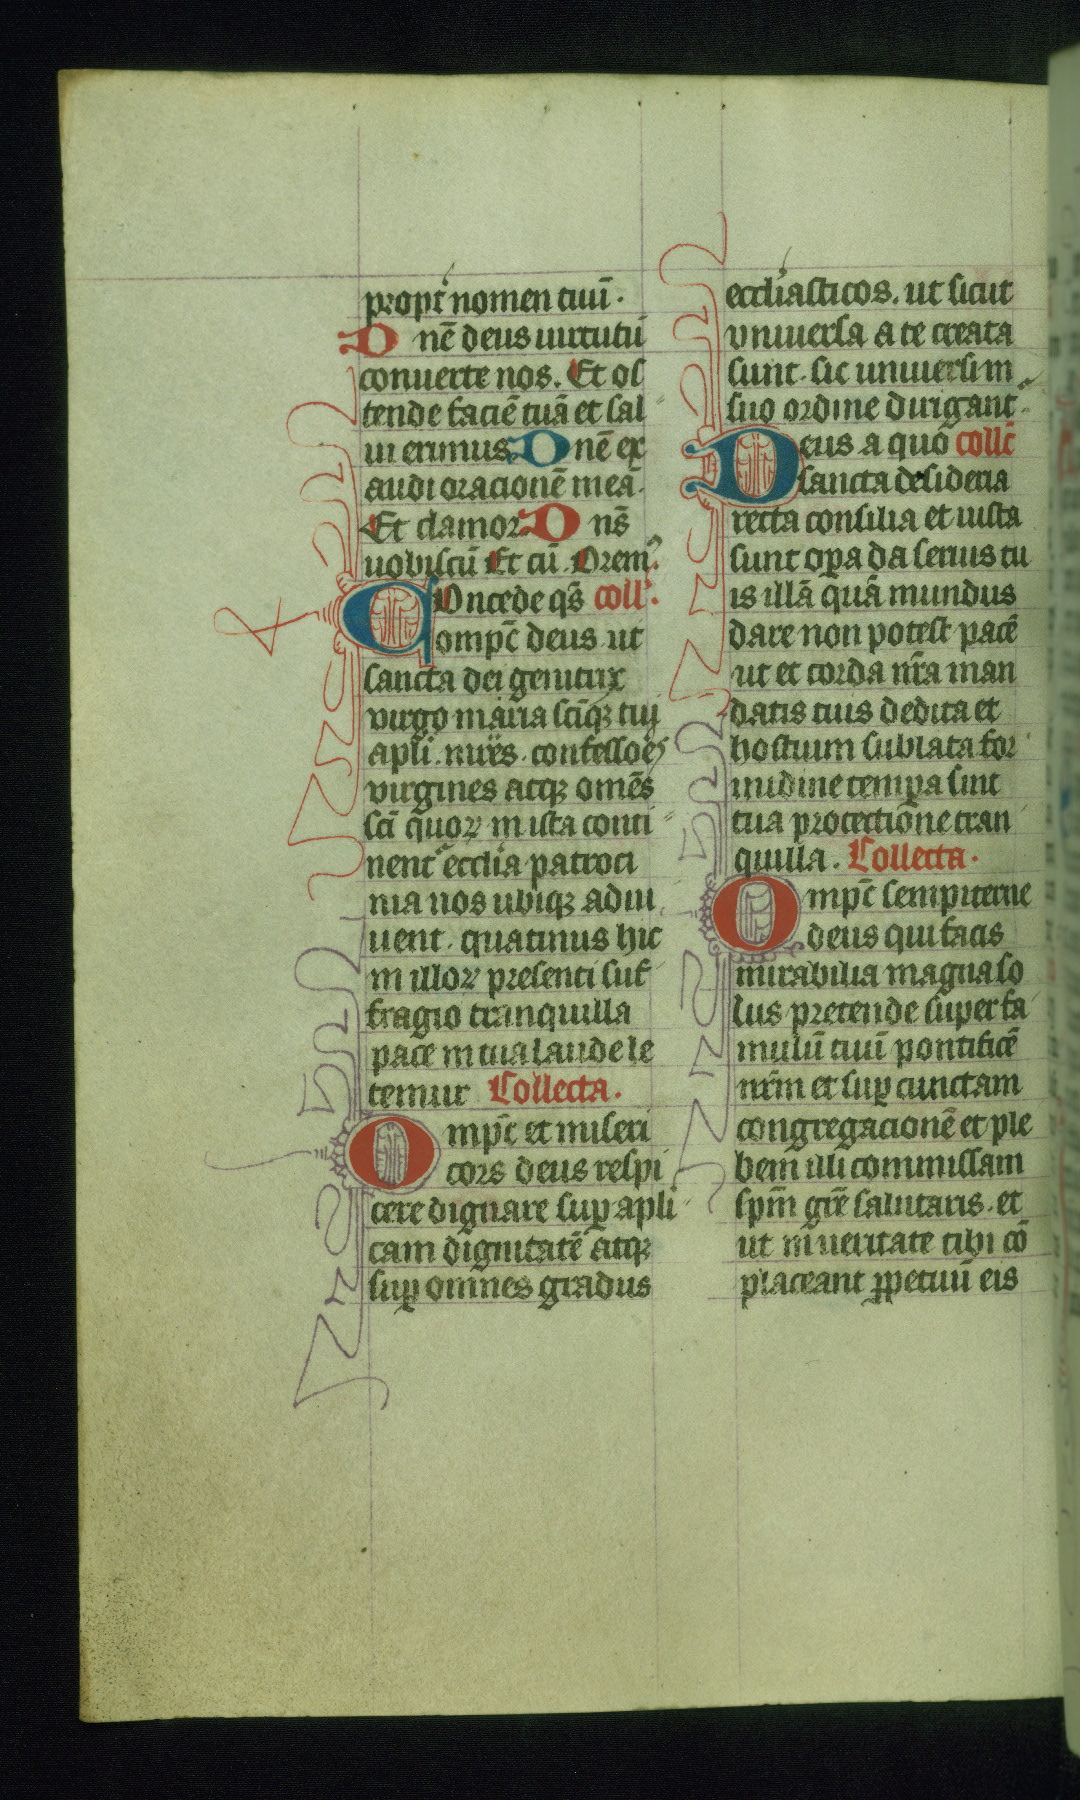 propt᷑ nomen tuū.
Dnē deus uirtutū
conuerte nos. Et os
tende faciē tuā et sal
ui erimus. Dnē ex
audi oracionē meā.
Et clamor. Dns̄
uobiscū Et cū. Orem᷒.
Concede qs̄ coll᷒.
omp̄c deus ut
sancta dei genitrix
virgo maria sc̄iqꝫ tui
apl̄i. mr̄es. confessoēs
virgines atqꝫ omēs
sc̄i quoꝝ in ista conti
nent᷑ ecclīa patroci
nia nos ubiqꝫ adiu
uent. quatinus hic
in illoꝝ presenti suf
fragio tranquilla
pace in tua laude le
temur Collecta.
Omp̄c et miseri
cors deus respi
cere dignare suꝑ apl̄i
cam dignitatē atqꝫ
suꝑ omnes gradus
eccl̄iasticos. ut sicut
vniuersa a te creata
sunt. sic uniuersi in
suo ordine dirigant᷑.
Deus a quo coll̄c
sancta desideria
recta consilia et iusta
sunt oꝑa da seruis tu
is illā quā mundus
dare non potest pacē
ut et corda nr̄a man
datis tuis dedita et
hostium sublata for
midine tempa sint
tua protectione tran
quilla. Collecta.
Omp̄c sempiterne
deus qui facis
mirabilia magna so
lus pretende super fa
mulū tuū pontificē
nr̄m et suꝑ cunctam
congregacionē et ple
bem illi commissam
sp̄m gr̄e salutaris. et
ut in ueritate tibi cō
placeant ꝑpetuū eis